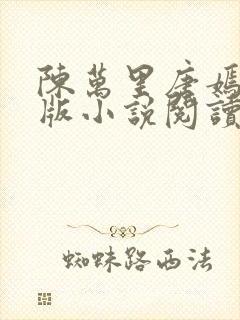 陳萬里唐嫣
版小說閱讀
蜘蛛路西法